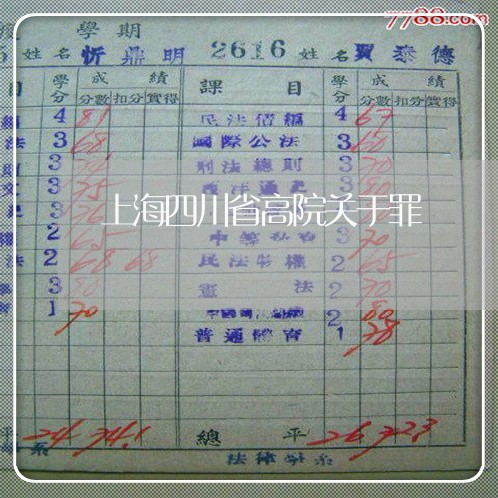 7788.com
學期
姓名 忻鼎明 2616 姓名 賈泰德
目 學分 成績 課目 學分 成績
分數 扣分 實得 分數 扣分 實得
4 81 民法債編 4 67
法 3 68 國際公法 3 60
3 刑法總則 3 70
文 3 75 西洋通史 3 80
3 76 3
上海四川省高院关于罪
權 2 65 中等 3 70
法 2 68 68 民法物權 2 65
3 80 憲法 2 70
育 1 70 2 80
普通體育 1 78
平 24 74.1 總平 26 72.3
系 法律學系